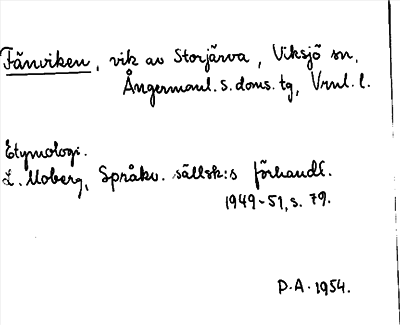 Fänviken, vik av Storjärva, Viksjö sn,
Ångermanl. s. doms. tg, Vrnl. l.
Etymologi.
L. Moberg, Språkv. sällsk:s förhandl.
1949-51, s. 79.
P.A. 1954.